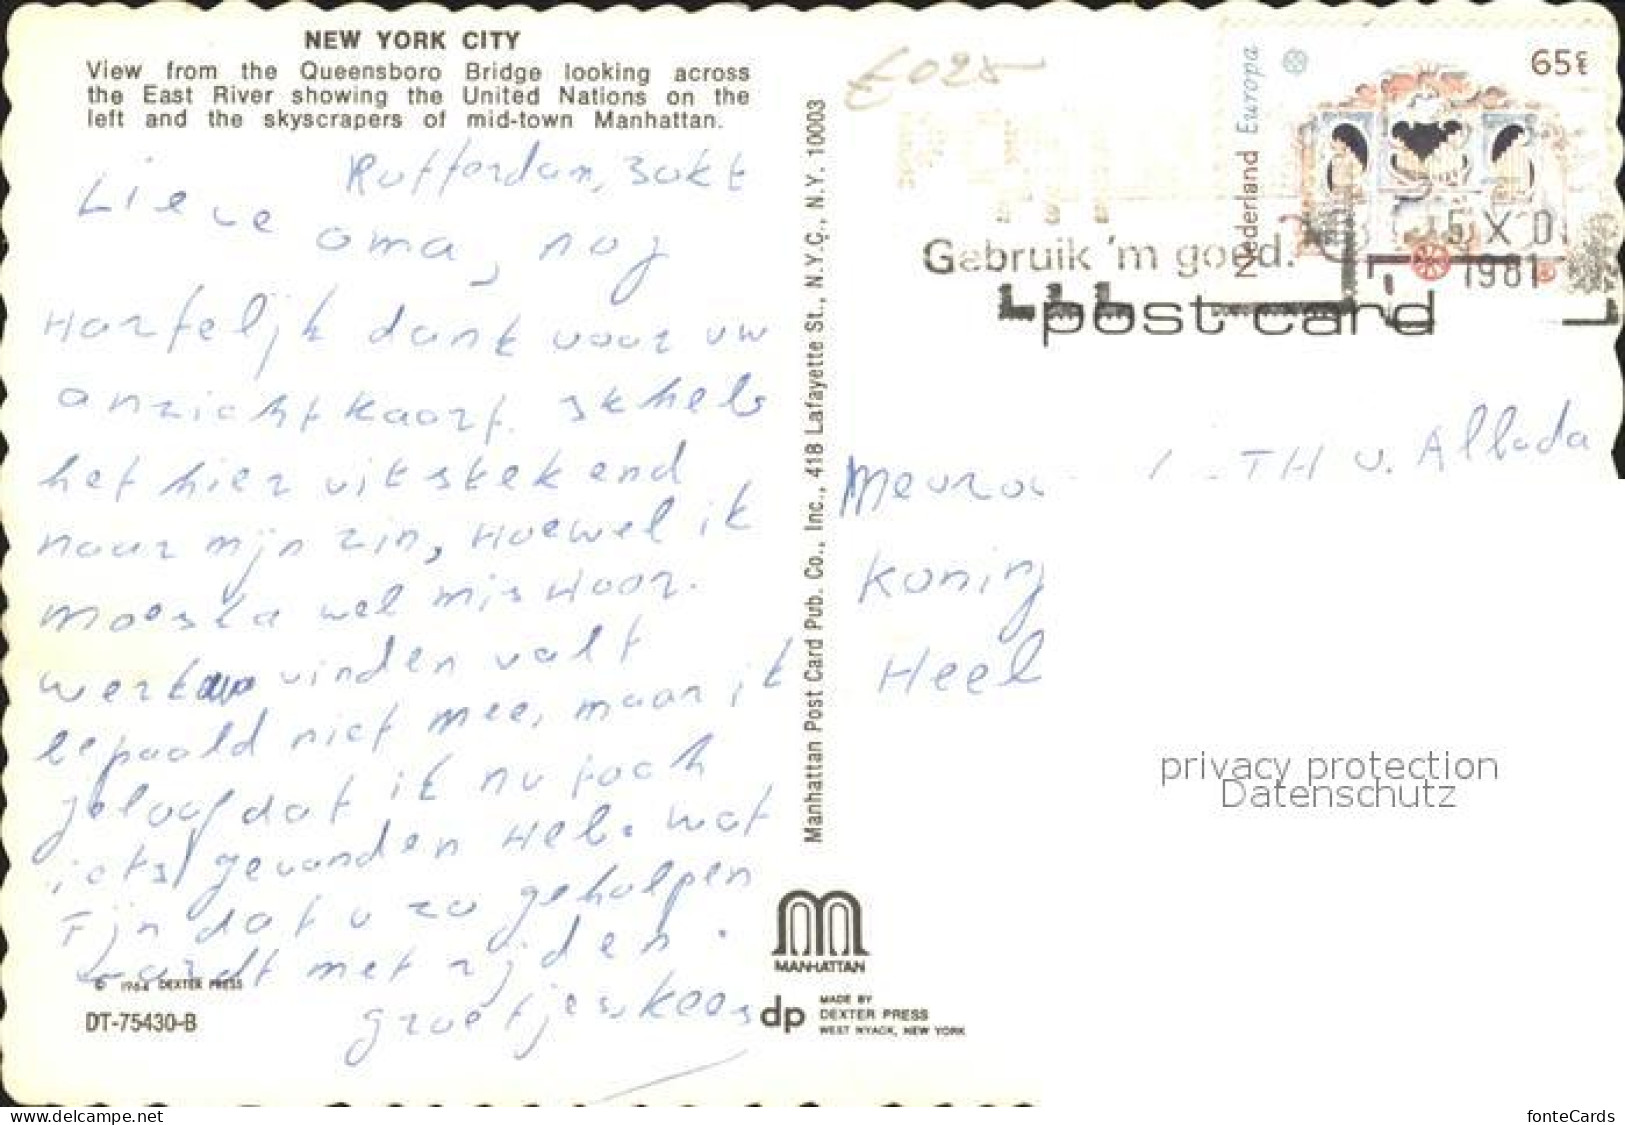 NEW YORK CITY
View from the Queensboro Bridge looking across
the East River showing the United Nations on the
left and the skyscrapers of mid-town Manhattan.
Rotterdam, 3 okt
Lieve oma, nog
Hartelijk dank voor uw
anzichtkaart. Ik heb
het hier uitstekend
naar mijn zin, Hoewel ik
moeska wel mis Hoor.
werk vinden valt
bepaald niet mee, maar ik
geloof dat ik nu toch
iets gevonden Heb. wat
Fijn dat u zo geholpen
wordt met rijden.
groetjes, kees
© 1964 DEXTER PRESS
DT-75430-B
Manhattan Post Card Pub. Co., Inc., 418 Lafayette St., N.Y.C., N.Y. 10003
MANHATTAN
dp
MADE BY
DEXTER PRESS
WEST NYACK, NEW YORK
€025
Nederland Europa
65 c
Gebruik 'm goed.
5 X 81
1981
post card
TH v. Allada
Koning
Heel
privacy protection
Datenschutz
www.delcampe.net
fonteCards